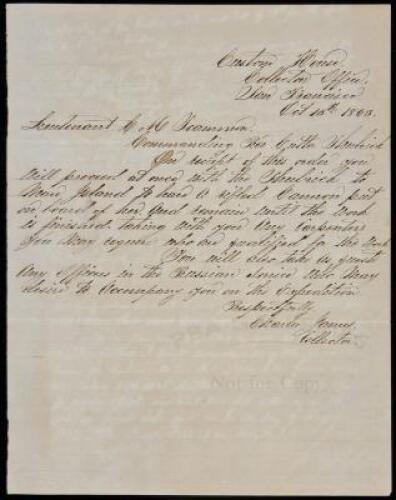 Custom House
Collector Office,
San Francisco
Oct 15th 1863.
Lieutenant C M Scammon.
Commanding Rev Cutter Shubrick
On receipt of this order you
will proceed at once with the Shubrick to
Mare Island to have a rifled Cannon put
on board of her, and remain until the work
is finished. taking with you any carpenters
you may require who are qualified for the work
You will also take as guest
any officers in the Russian Service who may
desire to accompany you on the Expedition
Respectfully
James,
Collector
Not for Copy